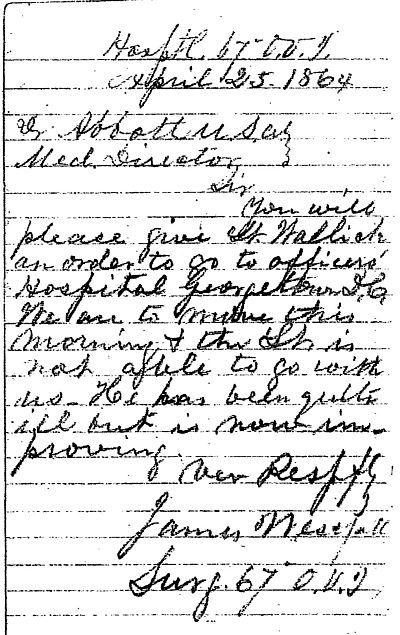 Hosptl. 67" O.V.I.
April 25. 1864
Dr Abbott U S a
Med. Director
Sir
You will
please give Lt. Wallick
an order to go to officers'
Hospital Georgetown D,C
We are to move this
morning & the Lt. is
not able to go with
us - He has been quite
ill but is now im-
proving.
Very Respfly
James Westfall
Surg. 67" O.V.I,